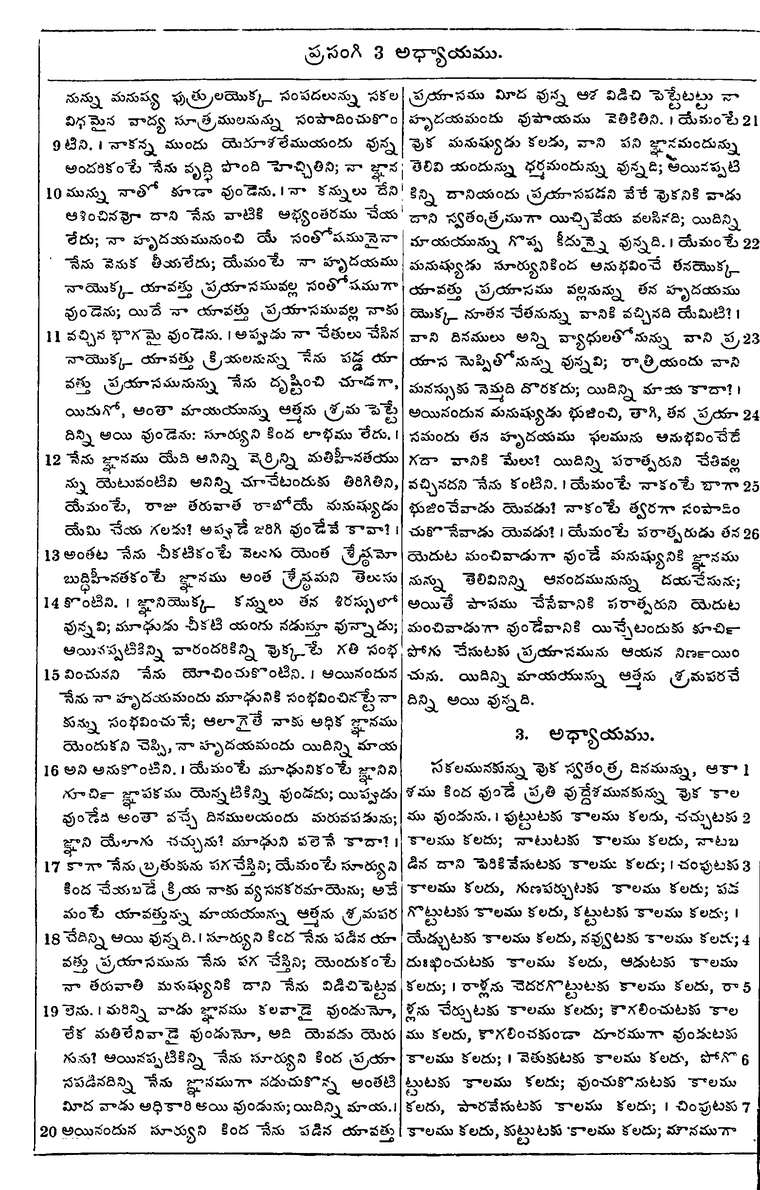 ప్రసంగి 3 అధ్యాయము.
నున్ను మనుష్య పుత్రులయొక్క సంపదలున్ను సకల
విధమైన వాద్య సూత్రములనున్ను సంపాదించుకొం
9 టిని. । నాకన్న ముందు యెహాశలేములయందు వున్న
అందరికంటే నేను వృద్ధి పొంది హెచ్చితిని; నా జ్ఞాన
10 మున్ను నాతో కూడా వుండెను. । నా కన్నులు దేని
ఆశించినవో దాని నేను వాటికి అభ్యంతరము చేయ
లేదు; నా హృదయమునుంచి యే సంతోషమునైనా
నేను వెనుక తీయలేదు; యేమంటే నా హృదయము
నాయొక్క యావత్తు ప్రయాసమువల్ల సంతోషముగా
వుండెను; యిదే నా యావత్తు ప్రయాసమువల్ల నాకు
11 వచ్చిన భాగమై వుండెను. । అప్పుడు నా చేతులు చేసిన
నాయొక్క యావత్తు క్రియలనున్ను నేను పడ్డ యా
వత్తు ప్రయాసమునున్ను నేను దృష్టించి చూడగా,
యిదుగో, అంతా మాయయున్ను ఆత్మను శ్రమ పెట్టే
దిన్ని అయి వుండెను: సూర్యుని కింద లాభము లేదు. ।
12 నేను జ్ఞానము యేది అనిన్ని వెర్రిన్ని మతిహీనతయు
న్ను యెటువంటివి అనిన్ని చూచేటందుకు తిరిగితిని,
యేమంటే, రాజు తరువాత రాబోయే మనుష్యుడు
యేమి చేయ గలడు? అప్పుడే జరిగి వుండేవే కావా? ।
13 అంతట నేను చీకటికంటే వెలుగు యెంత శ్రేష్ఠమో
బుద్ధిహీనతకంటే జ్ఞానము అంత శ్రేష్ఠమని తెలుసు
14 కొంటిని. । జ్ఞానియొక్క కన్నులు తన శిరస్సులో
వున్నవి; మూఢుడు చీకటి యందు నడుస్తూ వున్నాడు;
అయినప్పటికిన్ని వారందరికిన్ని వొక్కటే గతి సంభ
15 వించునని నేను యోచించుకొంటిని. । అయినందున
నేను నా హృదయమందు మూఢునికి సంభవించినట్టే నా
కున్ను సంభవించునే; ఆలాగైతే నాకు అధిక జ్ఞానము
యెందుకని చెప్పి, నా హృదయమందు యిదిన్ని మాయ
16 అని అనుకొంటిని. । యేమంటే మూఢునికంటే జ్ఞానిని
గూర్చి జ్ఞాపకము యెన్నటికిన్ని వుండదు; యిప్పుడు
వుండేది అంతా వచ్చే దినములయందు మరువపడును;
జ్ఞాని యేలాగు చచ్చును? మూఢుని వలెనే కాదా? ।
17 కాగా నేను బ్రతుకును పగచేస్తిని; యేమంటే సూర్యుని
కింద చేయబడే క్రియ నాకు వ్యసనకరమాయెను; అదే
మంటే యావత్తున్ను మాయయున్ను ఆత్మను శ్రమపర
18 చేదిన్ని అయి వున్నది. । సూర్యుని కింద నేను పడిన యా
వత్తు ప్రయాసమును నేను పగ చేస్తిని; యెందుకంటే
నా తరువాతి మనుష్యునికి దాని నేను విడిచిపెట్టవ
19 లెను. । మరిన్ని వాడు జ్ఞానము కలవాడై వుండునో,
లేక మతిలేనివాడై వుండునో, అది యెవడు యెరు
గును? అయినప్పటికిన్ని నేను సూర్యుని కింద ప్రయా
సపడినదిన్ని నేను జ్ఞానముగా నడుచుకొన్న అంతటి
మీద వాడు అధికారి అయి వుండును; యిదిన్ని మాయ. ।
20 అయినందున సూర్యుని కింద నేను పడిన యావత్తు
ప్రయాసము మీద వున్న ఆశ విడిచి పెట్టేటట్టు నా
హృదయమందు వుపాయము వెతికితిని. । యేమంటే 21
వొక మనుష్యుడు కలడు, వాని పని జ్ఞానమందున్ను
తెలివి యందున్ను ధర్మమందున్ను వున్నది; అయినప్పటి
కిన్ని దానియందు ప్రయాసపడని వేరే వొకనికి వాడు
దాని స్వతంత్రముగా యిచ్చివేయ వలసినది; యిదిన్ని
మాయయున్ను గొప్ప కీడున్నై వున్నది. । యేమంటే 22
మనుష్యుడు సూర్యునికింద అనుభవించే తనయొక్క
యావత్తు ప్రయాసము వల్లనున్ను తన హృదయము
యొక్క నూతన చేతనున్ను వానికి వచ్చినది యేమిటి? ।
వాని దినములు అన్ని వ్యాధులతోనున్ను వాని ప్ర 23
యాస నొప్పితోనున్ను వున్నవి; రాత్రియందు వాని
మనస్సుకు నెమ్మది దొరకదు; యిదిన్ని మాయ కాదా? ।
అయినందున మనుష్యుడు భుజించి, తాగి, తన ప్రయా 24
సమందు తన హృదయము ఫలమును అనుభవించేదే
గదా వానికి మేలు? యిదిన్ని పరాత్పరుని చేతివల్ల
వచ్చినదని నేను కంటిని. । యేమంటే నాకంటే బాగా 25
భుజించేవాడు యెవడు? నాకంటే త్వరగా సంపాదిం
చుకొనేవాడు యెవడు? । యేమంటే పరాత్పరుడు తన 26
యెదుట మంచివాడుగా వుండే మనుష్యునికి జ్ఞానము
నున్ను తెలివినిన్ని ఆనందమునున్ను దయచేసును;
అయితే పాపము చేసేవానికి పరాత్పరుని యెదుట
మంచివాడుగా వుండేవానికి యిచ్చేటందుకు కూర్చి
పోగు చేసుటకు ప్రయాసమును ఆయన నిర్ణయిం
చును. యిదిన్ని మాయయున్ను ఆత్మను శ్రమపరచే
దిన్ని అయి వున్నది.
3. అధ్యాయము.
సకలమునకున్ను వొక స్వతంత్ర దినమున్ను, ఆకా 1
శము కింద వుండే ప్రతి వుద్దేశమునకున్ను వొక కాల
ము వుండును. । పుట్టుటకు కాలము కలదు, చచ్చుటకు 2
కాలము కలదు; నాటుటకు కాలము కలదు, నాటబ
డిన దాని పెరికివేసుటకు కాలము కలదు; । చంపుటకు 3
కాలము కలదు, గుణపర్చుటకు కాలము కలదు; పడ
గొట్టుటకు కాలము కలదు, కట్టుటకు కాలము కలదు; ।
యేడ్చుటకు కాలము కలదు, నవ్వుటకు కాలము కలదు; 4
దుఃఖించుటకు కాలము కలదు, ఆడుటకు కాలము
కలదు; । రాళ్లను చెదరగొట్టుటకు కాలము కలదు, రా 5
ళ్లను చేర్చుటకు కాలము కలదు; కాగలించుటకు కాల
ము కలదు, కాగలించకుండా దూరముగా వుండుటకు
కాలము కలదు; । వెతుకుటకు కాలము కలదు, పోగొ 6
ట్టుటకు కాలము కలదు; వుంచుకొనుటకు కాలము
కలదు, పారవేసుటకు కాలము కలదు; । చింపుటకు 7
కాలము కలదు, కుట్టుటకు కాలము కలదు; మౌనముగా